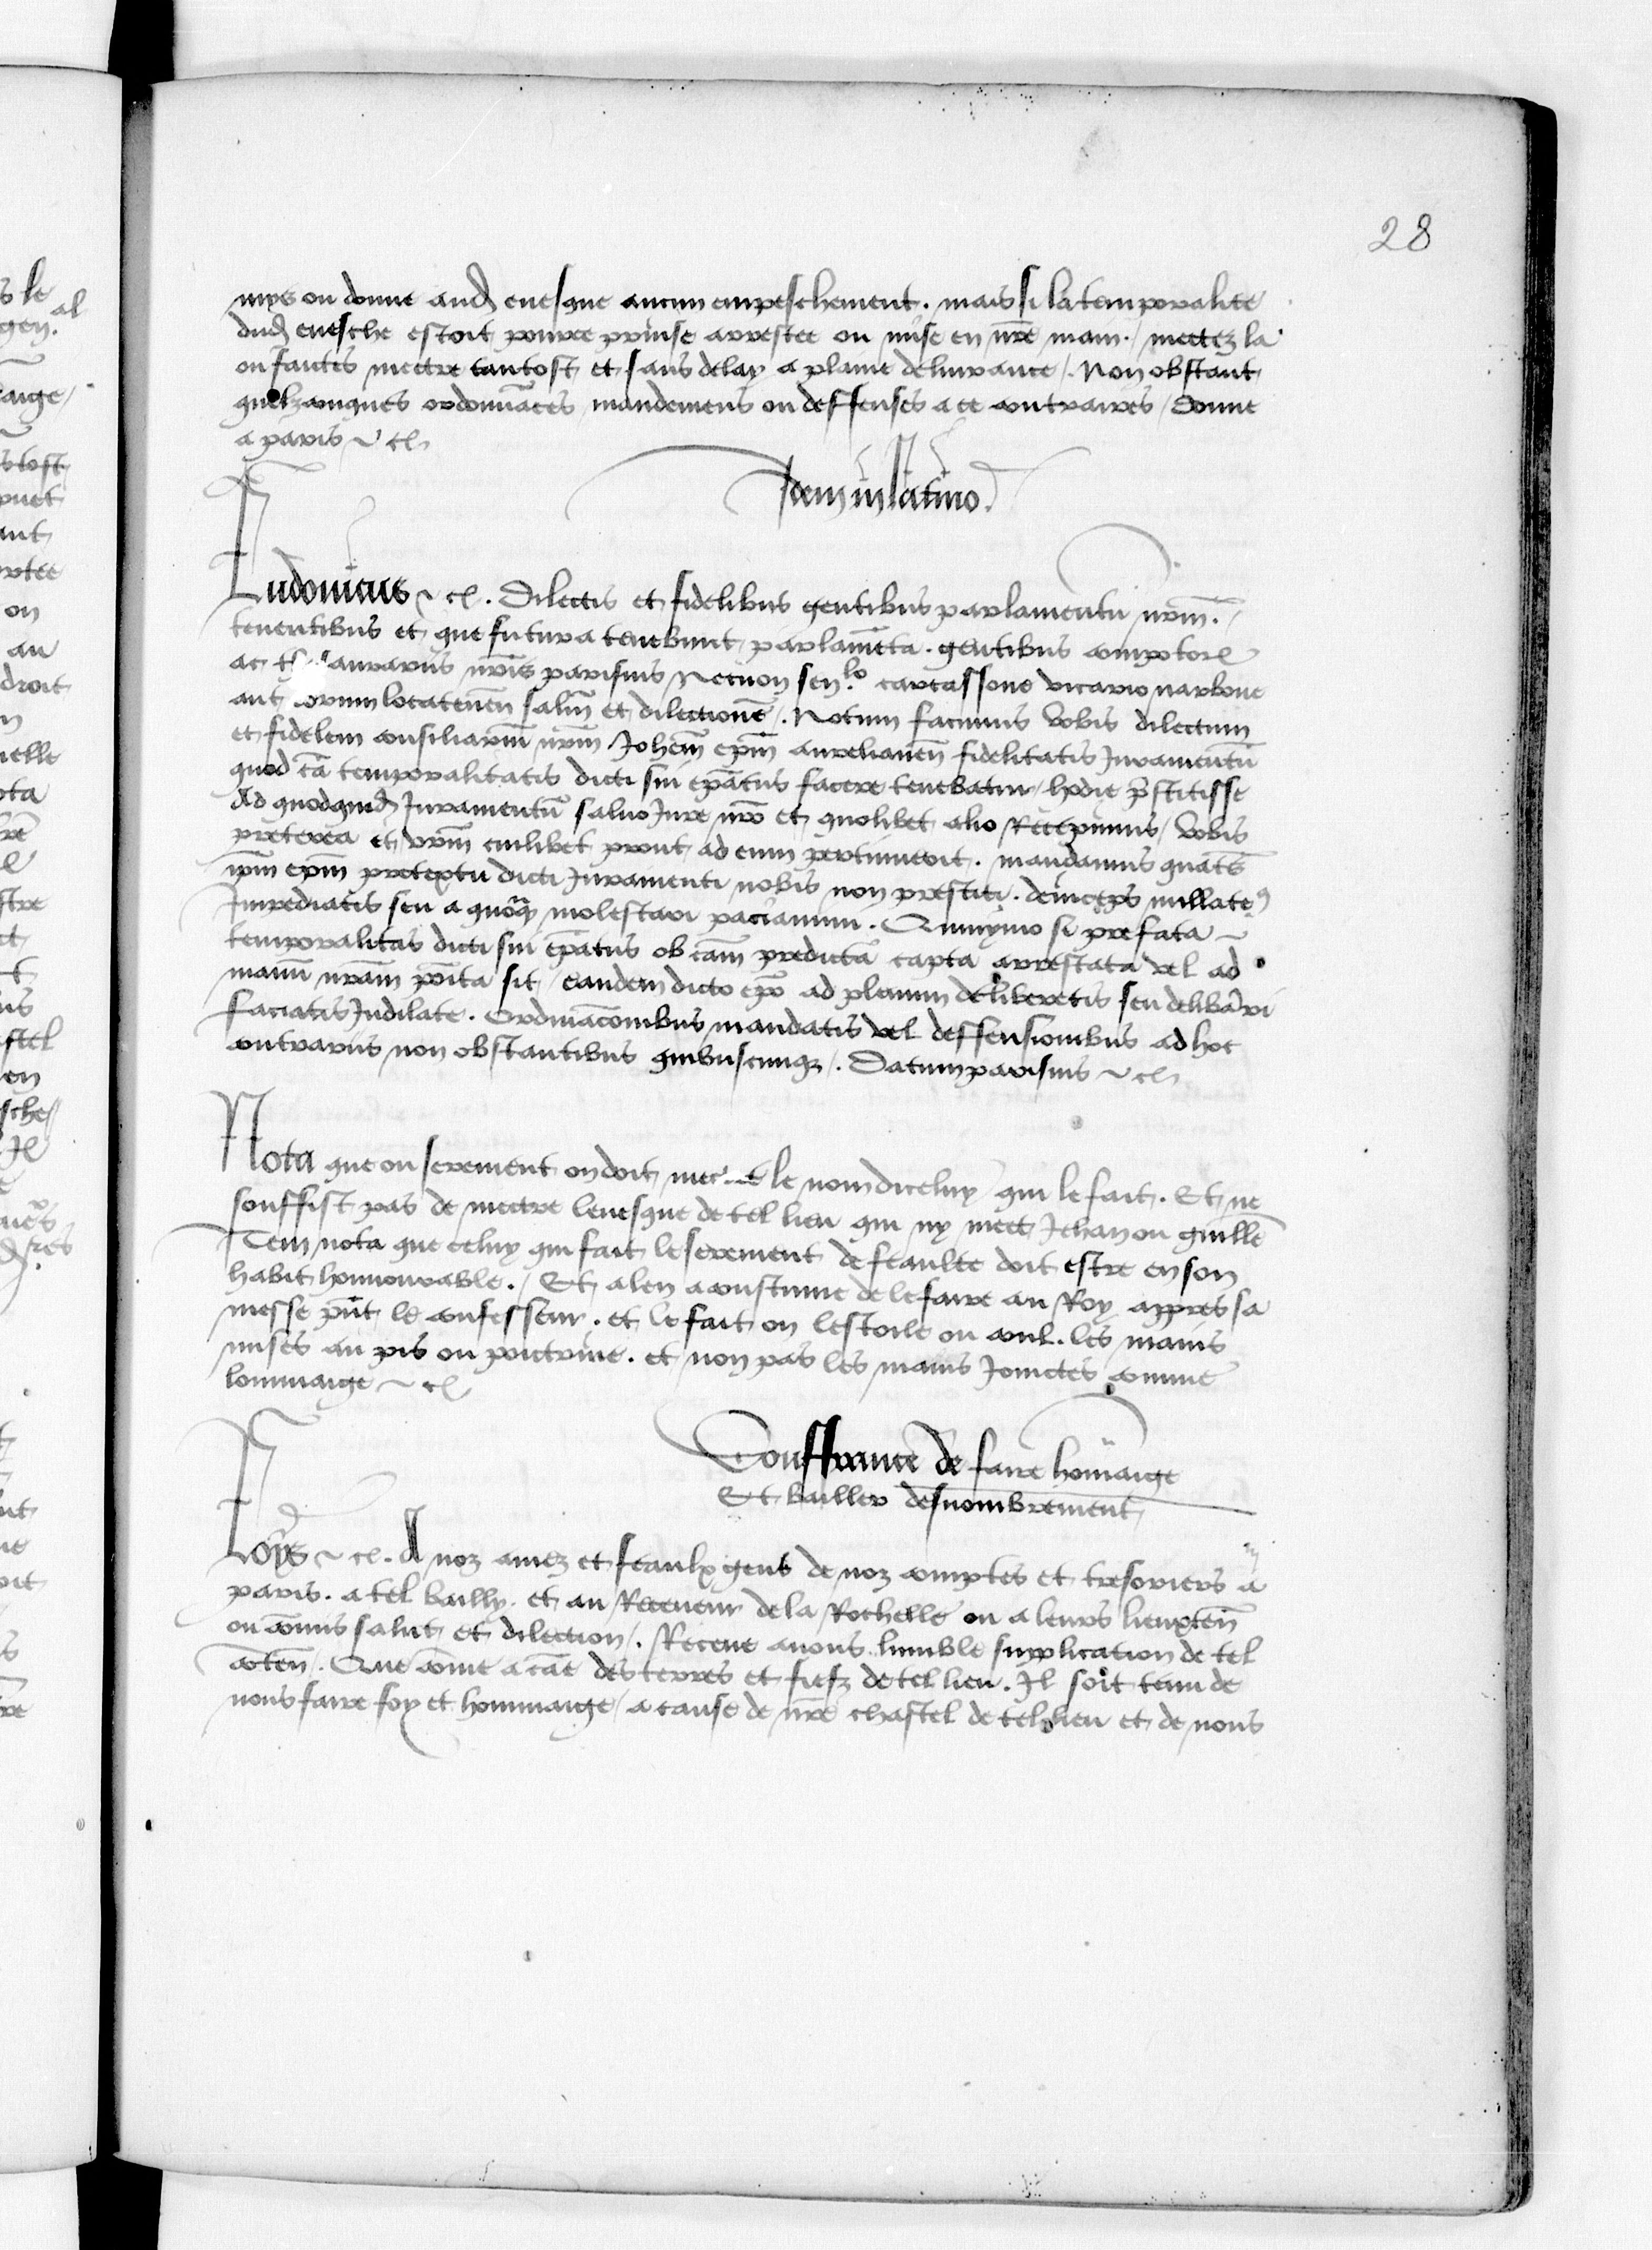 28
mys ou donne aud evesque aucun empeschement. mais si la temporalite
dud evesche estoit pource prinse arrestee ou mise en nr̄e main. / mectez la
ou faictes mectre tantost et sans delay a plaine delivrance /. Non obstant
quelzconques ordonnāces mandemens ou deffenses a ce contraires / Donne
a paris ~ cͤ
Idem in latino.
Ludovicus ~ cͤ. Dilectis et fidelibus gentibus parlamentū nr̄m. /
tenentibus et que futura tenebunt parlamēta. gentibus compotoꝝ
ac th anrariis nr̄is parisius Necnon senˡᵒ carcassone vicario narbone
aut eorum locatenen̄ salm̄ et dilectionē /. Notum facimus vobis dilectum
et fidelem consiliariū nr̄m Johem̄ epm̄ aurelianen̄ fidelitatis Juramentū
quod cā temporalitatis dicti sui ep̄atus facere tenebatur / hodie p̄stitisse
Ad quodquid Juramentū salvo Jure nr̄o et quolibet alio Recepimus / vobis
preterea et vr̄m cuilibet prout ad eum pertinuerit. mandamus quatēs
ipm̄ epm̄ pretextu dicti Juramenti nobis non prestiti. deinceps nullateꝰ
Impediatis seu a quoqꝫ molestari paciamini. Quinymo si prefata ~
temporalitas dicti sui ep̄atus ob cām predictā capta arrestata vel ad
manū nr̄am po͞ita sit / eandem dicto epō ad plenum deliberetis seu deliberari
faciatis Indilate. Ordinac̄onibus mandatis vel deffensionibus ad hoc
contrariis non obstantibus quibuscunqꝫ /. Datum parisius ~ cͤ
Nota que ou serement on doit mec te le nom dicelluy qui le fait. Et ne
souffist pas de mectre levesque de tel lieu qui ny mect Jehan ou guillē
Item nota que celuy qui fait le serement de feaulte doit estre en son
habit honnourable. / Et a len acoustume de le faire au Roy appres sa
messe pn̄t le confesseur. et le fait on lestole ou coul. les mains
mises au pis ou poictrine. et non pas les mains Joinctes comme
lommaige ~ cͤ
Souffrance de faire hōmaige
Et bailler desnombrement
Loys ~ cͤ. A noz amez et feaulx gens de noz comptes et tresoriers a
paris. a tel bailly. et au Receveur de la Rochelle ou a leurs lieuxten̄
ou cōmis salut et dilection /. Receue avons lumble supplication de tel
conten̄. Que cōme a cāe des terres et fiefz de tel lieu. Il soit tenu de
nous faire foy et hommaige / a cause de nr̄e chastel de tel lieu et de nous